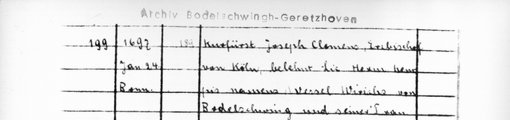 Archiv Bodelschwingh-Geretzhoven
199 1697 189 Kurfürst Joseph Clemens, Erzbischof
Jan 24 von Köln, belehnt die Herrn
Bonn. namens Wessel Wirichs von
Bodelschwing und seiner Frau